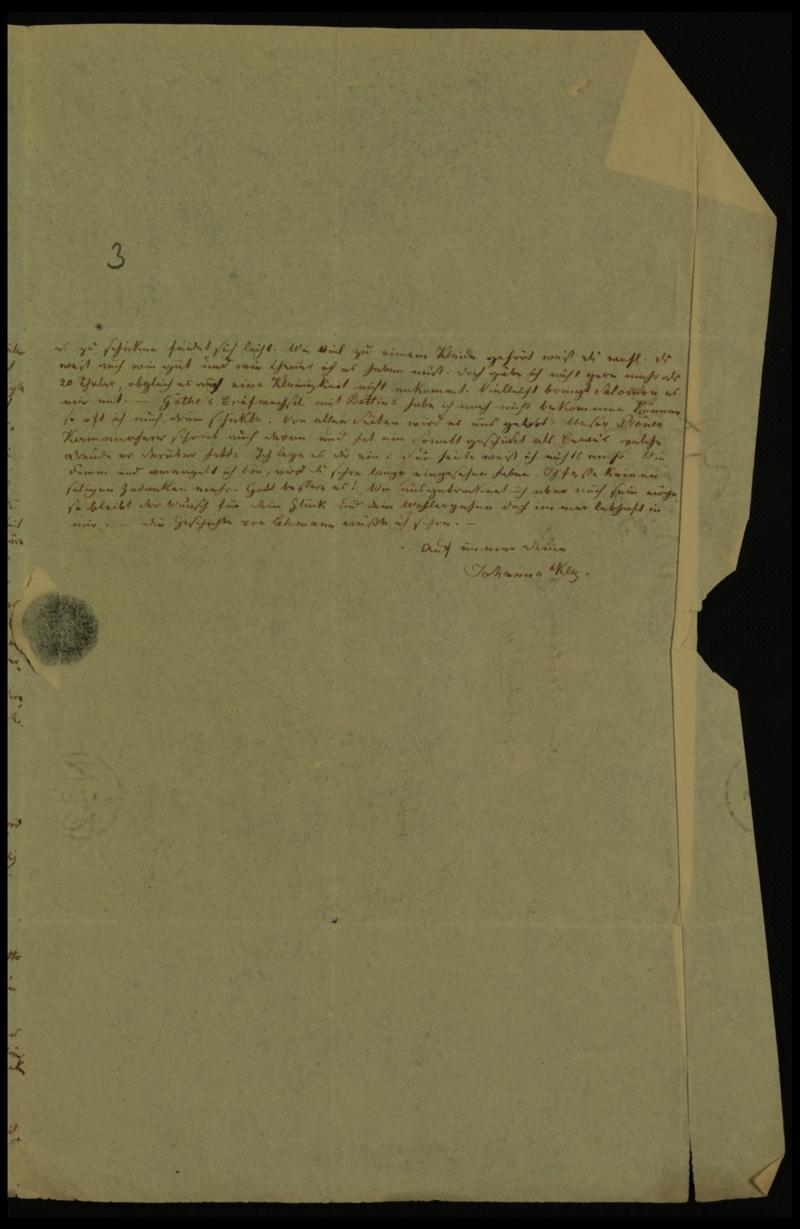 3
es zu schicken findet sich leicht. Wie viel zu einem Kleide gehört weißt du wohl. Du
weißt auch wie gut und wie theuer ich es haben muß. Doch gäbe ich nicht gern mehr als
20 Thaler, obgleich es auf eine Kleinigkeit nicht ankommt. Vielleicht bringt Salomon es
mir mit. — Göthe's Briefwechsel mit Bettina habe ich noch nicht bekommen können
so oft ich auch drum schickte. Von allen Seiten wird es uns gelobt. Unser
Kammerherr schrieb auch davon und hat ein Sonett geschickt als Beweis welche
Freude er darüber hatte. Ich lege es dir ein. Für heute weiß ich nichts mehr. Wie
dumm und ich bin, wirst du schon lange eingesehen haben. Ich fasse keinen
seligen Gedanken mehr. Gott bessere es! Wie ausgetrocknet ich aber auch sein möge,
so bleibt der Wunsch für dein Glück und dein Wohlergehen doch immer lebhaft in
mir. — Die Geschichte von Lehmann wußte ich schon. —
Auf immer Deine
Johanna